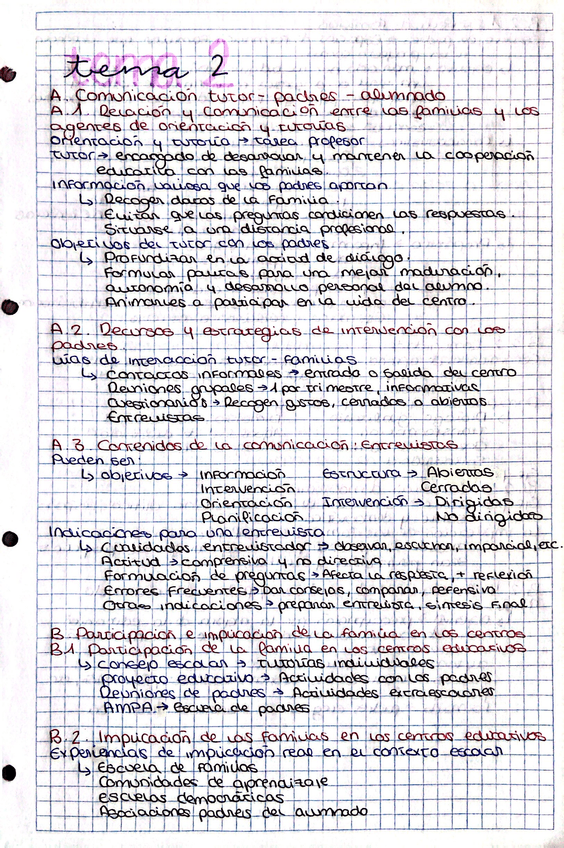 tema 2
A. Comunicación tutor - padres - alumnado
A.1. Relación y comunicación entre las familias y los
agentes de orientación y tutorías
Orientación y tutoría → tarea profesor
Tutor → encargado de desarrollar y mantener la cooperación
educativa con las familias.
Información valiosa que los padres aportan
↳ Recoger datos de la familia.
Evitar que las preguntas condicionen las respuestas.
Situarse a una distancia profesional.
Objetivos del tutor con los padres.
↳ Profundizar en la actitud de diálogo.
Formular pautas para una mejor maduración,
autonomía y desarrollo personal del alumno.
Animarles a participar en la vida del centro.
A.2. Recursos y estrategias de intervención con los
padres.
Vías de interacción tutor - familias
↳ Contactos informales → entrada o salida del centro
Reuniones grupales → 1 por trimestre, informativas
Cuestionarios → Recogen gustos, cerrados o abiertos
Entrevistas
A.3. Contenidos de la comunicación: Entrevistas
Pueden ser:
↳ Objetivos → Información Estructura → Abiertas
Intervención Cerradas
Orientación Intervención → Dirigidas
Planificación No dirigidas
Indicaciones para una entrevista
↳ Cualidades entrevistador → observar, escuchar, imparcial, etc.
Actitud → comprensiva y no directiva
Formulación de preguntas → Afecta la respuesta, + reflexión
Errores frecuentes → Dar consejos, comparar, defensiva
Otras indicaciones → preparar entrevista, síntesis final
B. Participación e implicación de la familia en los centros
B.1 Participación de la familia en los centros educativos
↳ Consejo escolar → tutorías individuales
proyecto educativo → Actividades con los padres
Reuniones de padres → Actividades extraescolares
AMPA → Escuela de padres
B.2. Implicación de las familias en los centros educativos
Experiencias de implicación real en el contexto escolar
↳ Escuela de familias
Comunidades de aprendizaje
escuelas democráticas
Asociaciones padres del alumnado